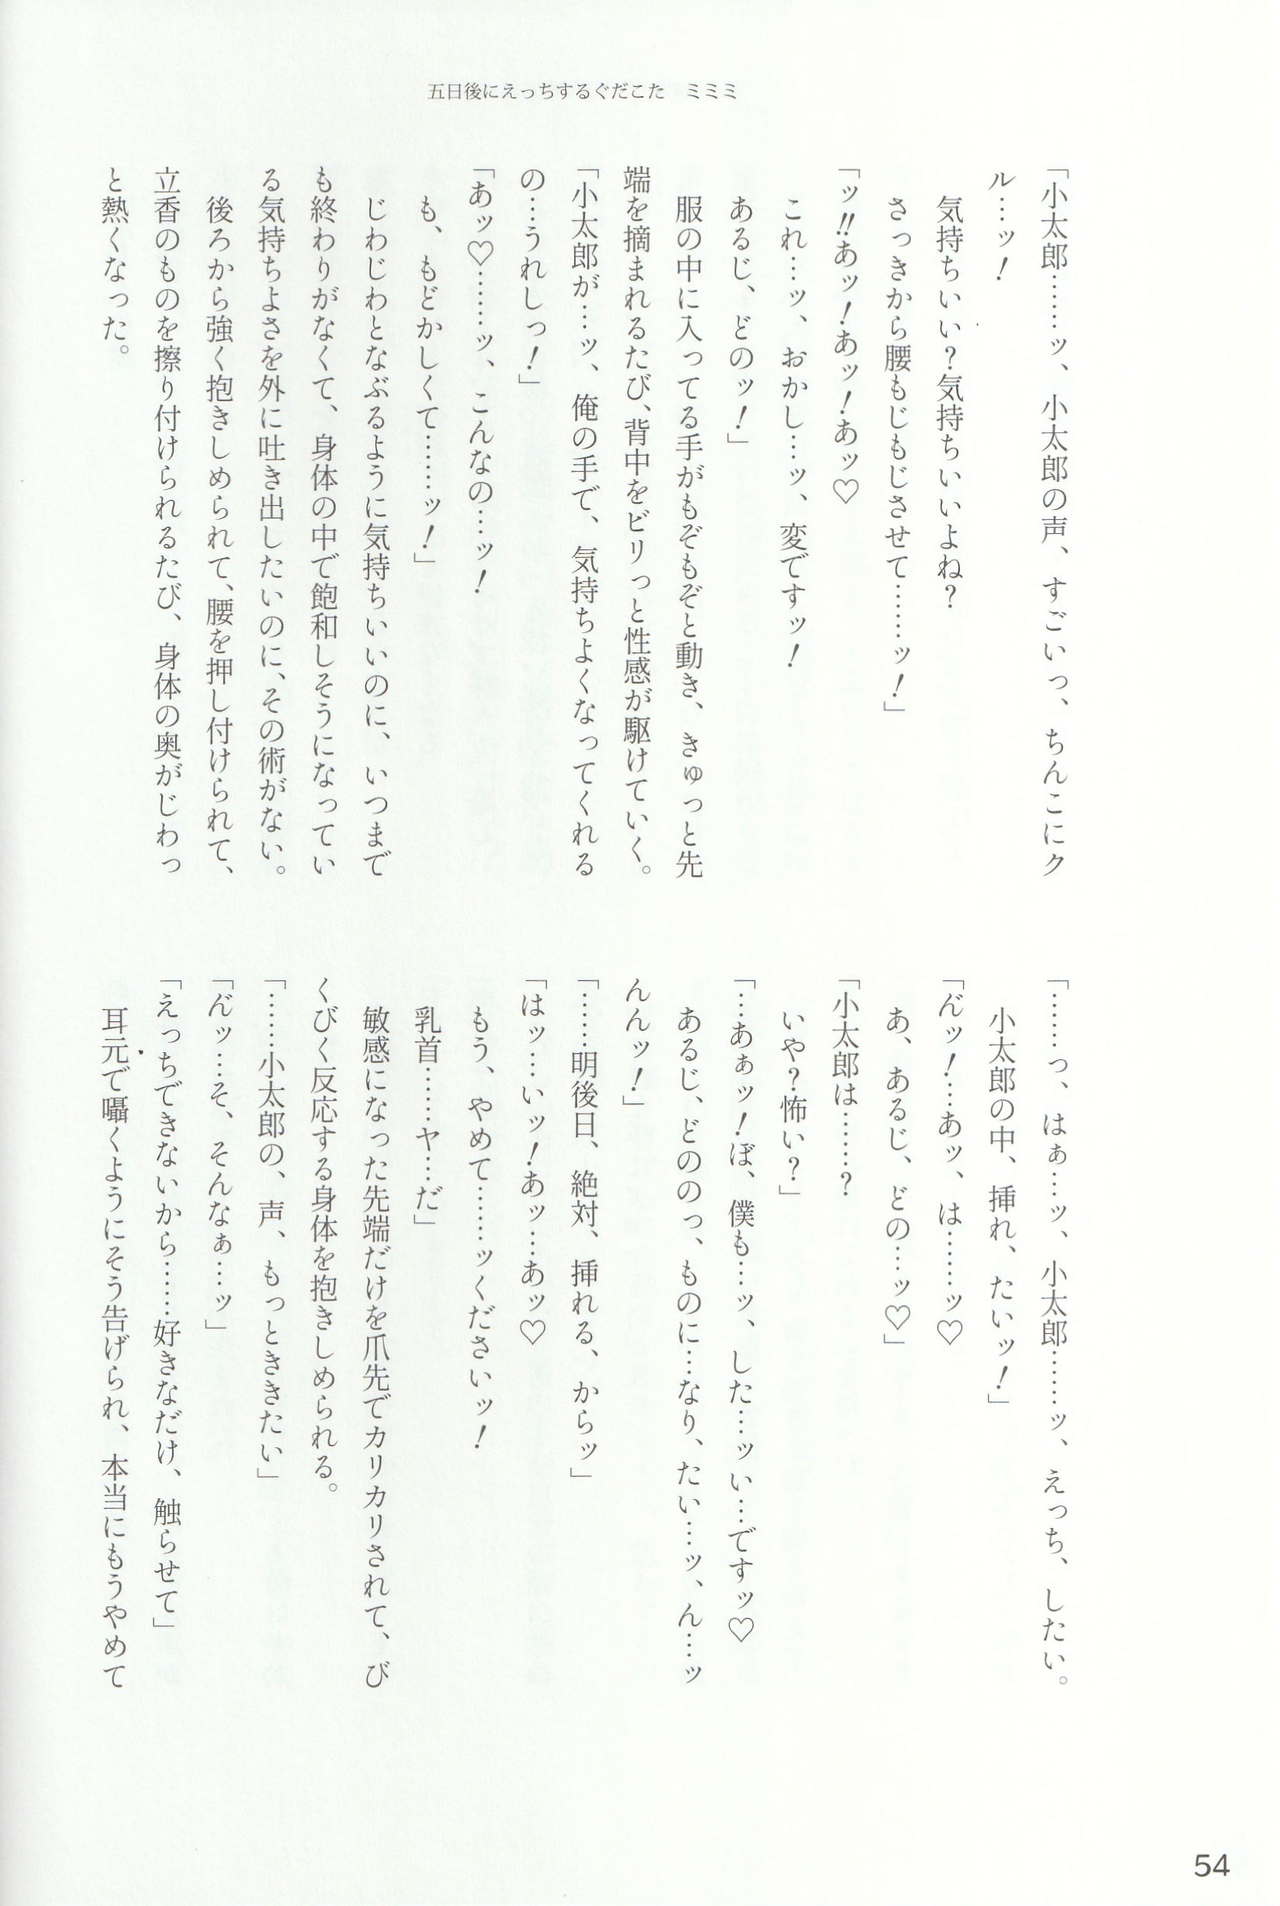 五日後にえっちするぐだこた　ミミミ
「小太郎……ッ、小太郎の声、すごいっ、ちんこにク
ル…ッ！
気持ちいい？気持ちいいよね？
さっきから腰もじもじさせて……ッ！」
「ッ‼あッ！あッ！あッ♡
これ…ッ、おかし…ッ、変ですッ！
あるじ、どのッ！」
服の中に入ってる手がもぞもぞと動き、きゅっと先
端を摘まれるたび、背中をビリっと性感が駆けていく。
「小太郎が…ッ、俺の手で、気持ちよくなってくれる
の…うれしっ！」
「あッ♡……ッ、こんなの…ッ！
も、もどかしくて……ッ！」
じわじわとなぶるように気持ちいいのに、いつまで
も終わりがなくて、身体の中で飽和しそうになってい
る気持ちよさを外に吐き出したいのに、その術がない。
後ろから強く抱きしめられて、腰を押し付けられて、
立香のものを擦り付けられるたび、身体の奥がじわっ
と熱くなった。
「……っ、はぁ…ッ、小太郎……ッ、えっち、したい。
小太郎の中、挿れ、たいッ！」
「ん゛ッ！…あッ、は……ッ♡
あ、あるじ、どの…ッ♡」
「小太郎は……？
いや？怖い？」
「…あぁッ！ぼ、僕も…ッ、した…ッい…ですッ♡
あるじ、どののっ、ものに…なり、たい…ッ、ん…ッ
んんッ！」
「……明後日、絶対、挿れる、からッ」
「はッ…いッ！あッ…あッ♡
もう、やめて……ッくださいッ！
乳首……ヤ…だ」
敏感になった先端だけを爪先でカリカリされて、び
くびく反応する身体を抱きしめられる。
「……小太郎の、声、もっとききたい」
「ん゛ッ…そ、そんなぁ…ッ」
「えっちできないから……好きなだけ、触らせて」
耳元で囁くようにそう告げられ、本当にもうやめて
54